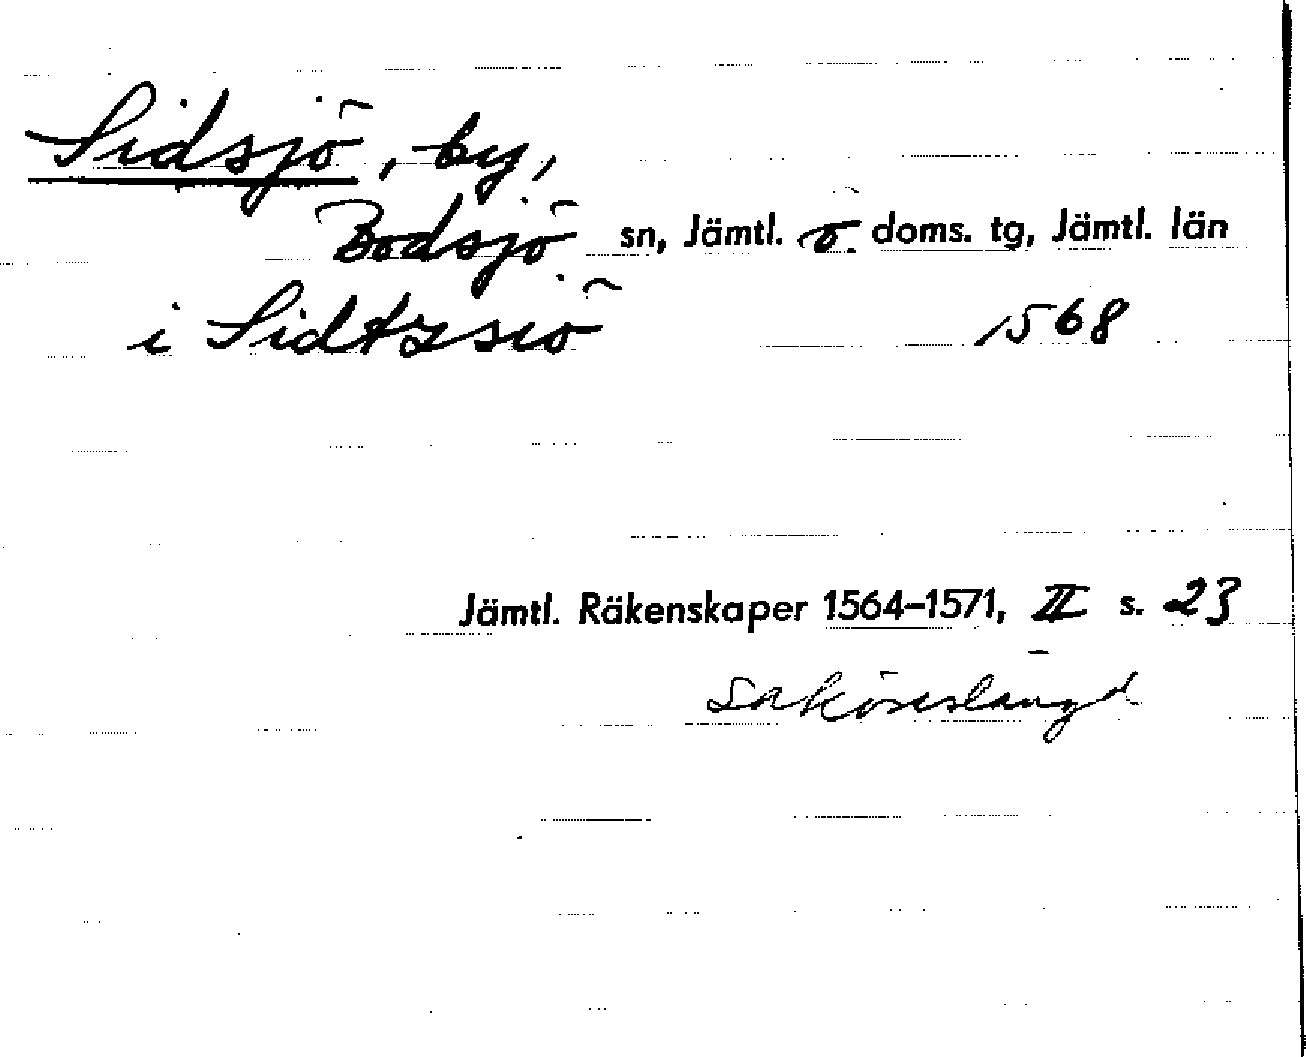 Sidsjö, by,
Bodsjö sn, Jämtl. ö. doms. tg, Jämtl. län
i Sidtzsiö 1568
Jämtl. Räkenskaper 1564–1571, II s. 23
Saköreslängd